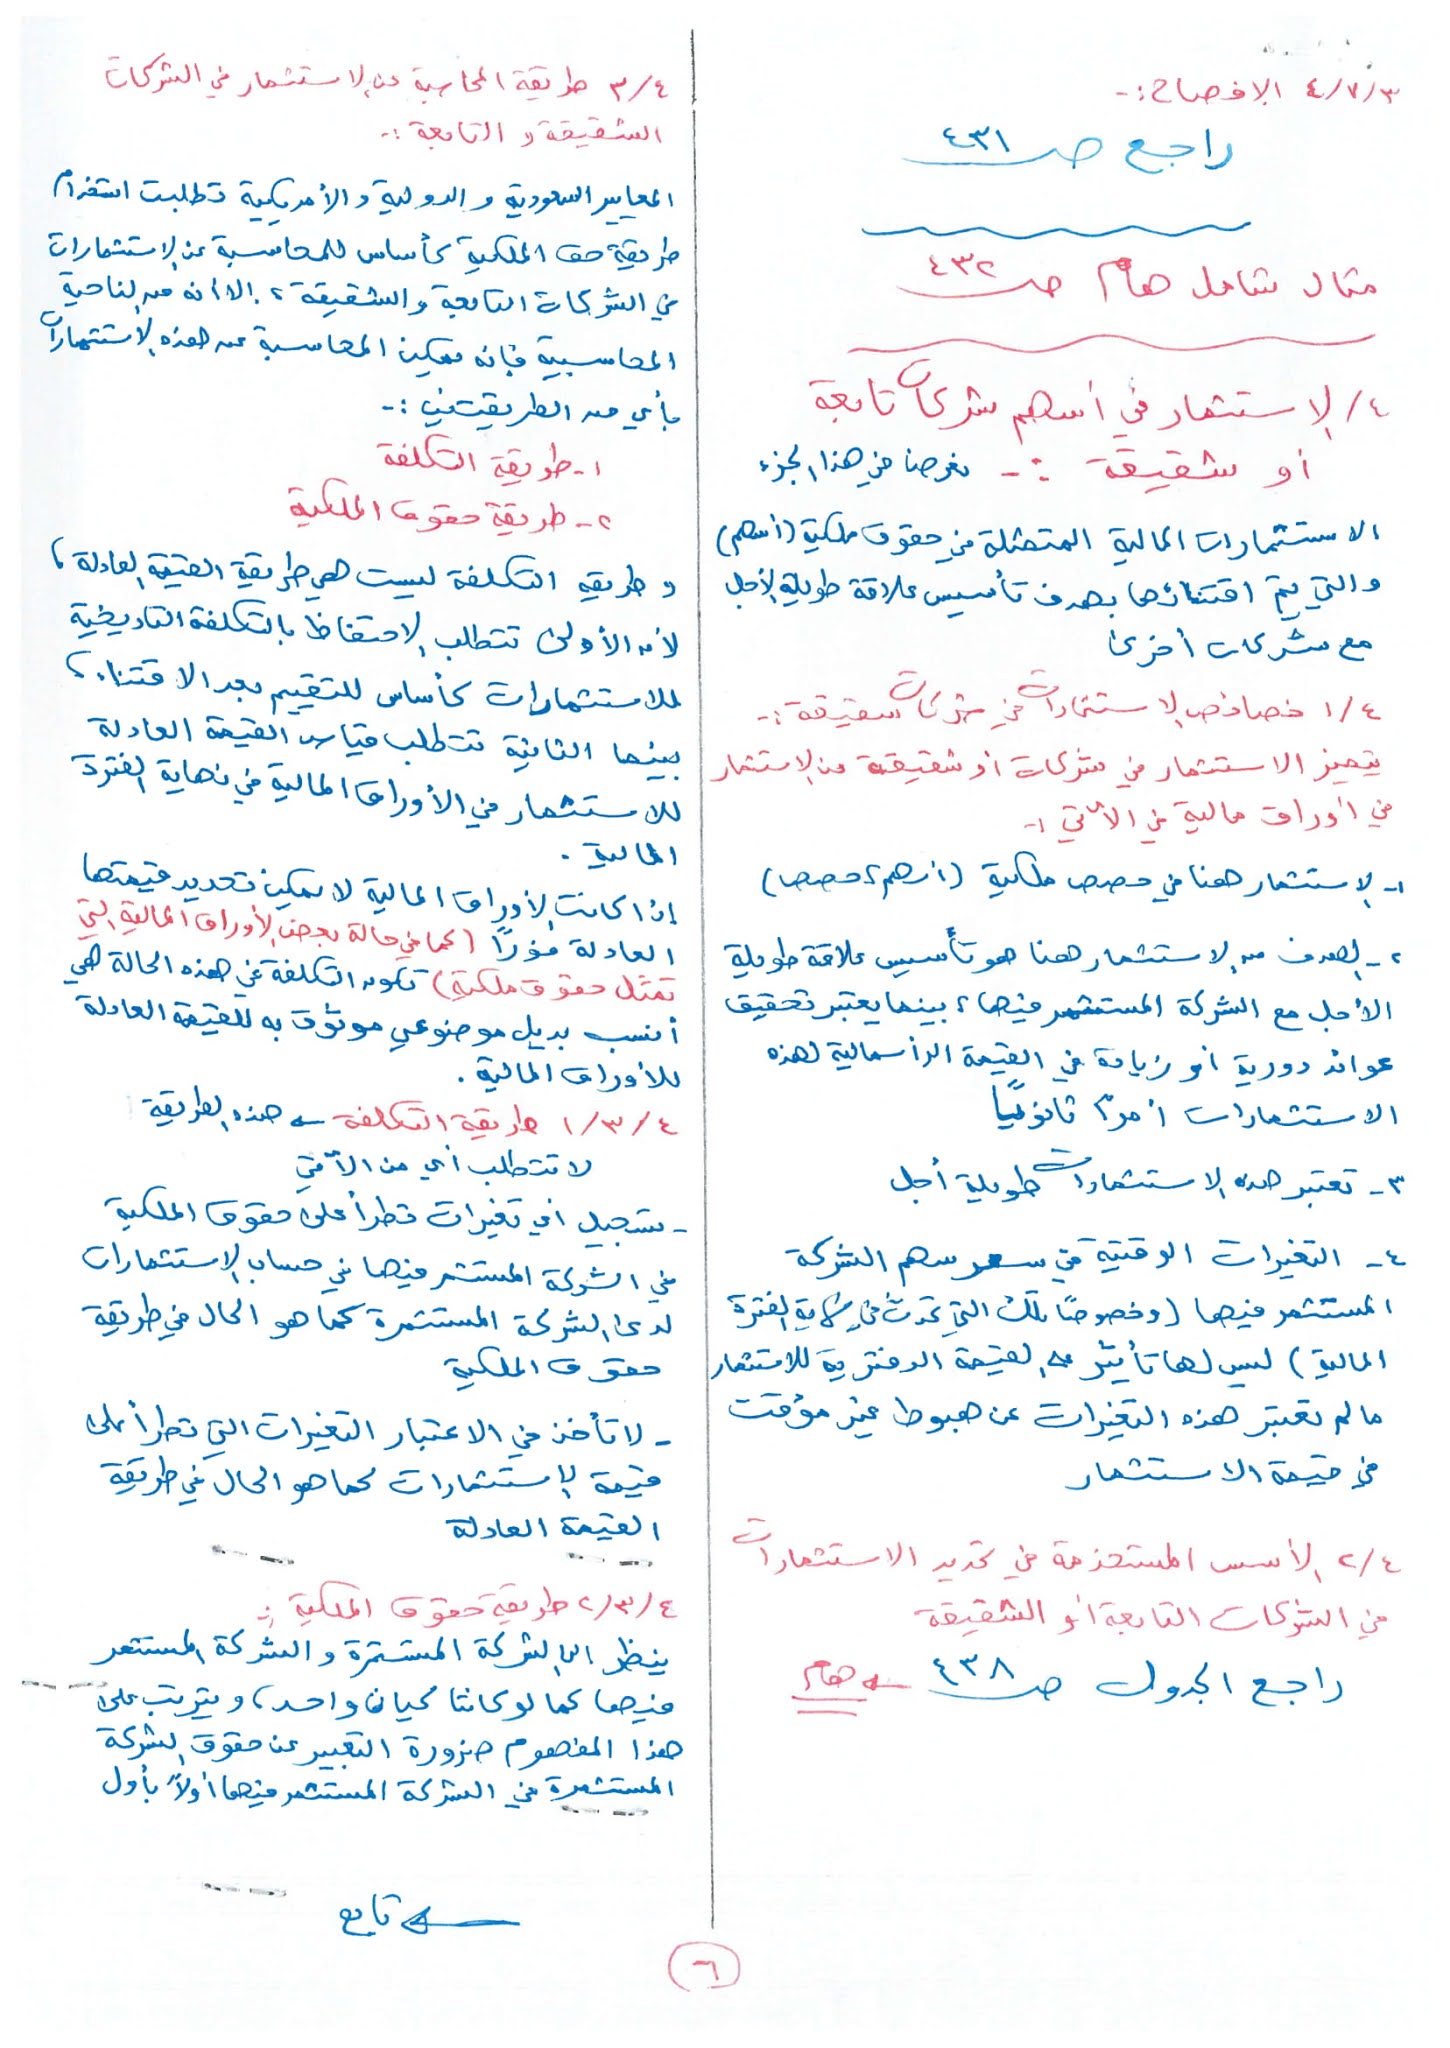 ٤/٧/٣ الافصاح :-
راجع صـ ٤٣١
مثال شامل هام صـ ٤٣٢
٤/ الاستثمار في أسهم شركات تابعة
أو شقيقة :- يعرض في هذا الجزء
الاستثمارات المالية المتمثلة في حقوق ملكية (أسهم)
والتي يتم اقتنائها بهدف تأسيس علاقة طويلة الأجل
مع شركات أخرى
١/٤ خصائص الاستثمارات في شركات شقيقة :-
يتميز الاستثمار في شركات أو شقيقة عن الاستثمار
في أوراق مالية في الآتي :-
١- الاستثمار هنا في حصص ملكية (أسهم، حصص)
٢- الهدف من الاستثمار هنا هو تأسيس علاقة طويلة
الأجل مع الشركة المستثمر فيها، بينما يعتبر تحقيق
عوائد دورية أو زيادة في القيمة الرأسمالية لهذه
الاستثمارات أمراً ثانوياً
٣- تعتبر هذه الاستثمارات طويلة أجل
٤- التغيرات الوقتية في سعر سهم الشركة
المستثمر فيها (وخصوصاً تلك التي تحدث في نهاية الفترة
المالية) ليس لها تأثير على القيمة الدفترية للاستثمار
ما لم تعتبر هذه التغيرات عن هبوط غير مؤقت
في قيمة الاستثمار
٢/٤ الأسس المستخدمة في تحديد الاستثمارات
في الشركات التابعة أو الشقيقة
راجع الجدول صـ ٤٣٨ ← هام
٣/٤ طريقة المحاسبة عن الاستثمار في الشركات
الشقيقة و التابعة :-
المعايير السعودية و الدولية و الأمريكية تطلبت استخدام
طريقة حق الملكية كأساس للمحاسبة عن الاستثمارات
في الشركات التابعة والشقيقة، إلا أنه من الناحية
المحاسبية فإنه يمكن المحاسبة عن هذه الاستثمارات
بأي من الطريقتين :-
١- طريقة التكلفة
٢- طريقة حقوق الملكية
و طريقة التكلفة ليست هي طريقة القيمة العادلة،
لأن الأولى تتطلب الاحتفاظ بالتكلفة التاريخية
للاستثمارات كأساس للتقييم بعد الاقتناء،
بينما الثانية تتطلب قياس القيمة العادلة
للاستثمار في الأوراق المالية في نهاية الفترة
المالية .
إذا كانت الأوراق المالية لا يمكن تحديد قيمتها
العادلة فوراً (كما في حالة بعض الأوراق المالية التي
تمثل حقوق ملكية) تكون التكلفة في هذه الحالة هي
أنسب بديل موضوعي موثوق به للقيمة العادلة
للأوراق المالية .
١/٣/٤ طريقة التكلفة ← هذه الطريقة
لا تتطلب أي من الآتي
- تسجيل أي تغيرات تطرأ على حقوق الملكية
في الشركة المستثمر فيها في حساب الاستثمارات
لدى الشركة المستثمرة كما هو الحال في طريقة
حقوق الملكية
- لا تأخذ في الاعتبار التغيرات التي تطرأ على
قيمة الاستثمارات كما هو الحال في طريقة
القيمة العادلة
٢/٣/٤ طريقة حقوق الملكية :-
ينظر الى الشركة المستثمرة و الشركة المستثمر
فيها كما لو كانتا كيان واحد، ويترتب على
هذا المفهوم ضرورة التعبير عن حقوق الشركة
المستثمرة في الشركة المستثمر فيها أولاً بأول
← تابع
٦